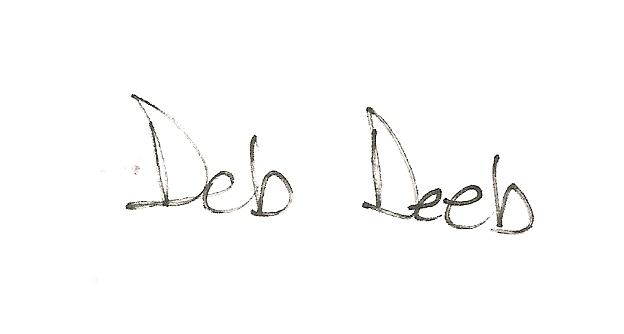 Deb Deeb